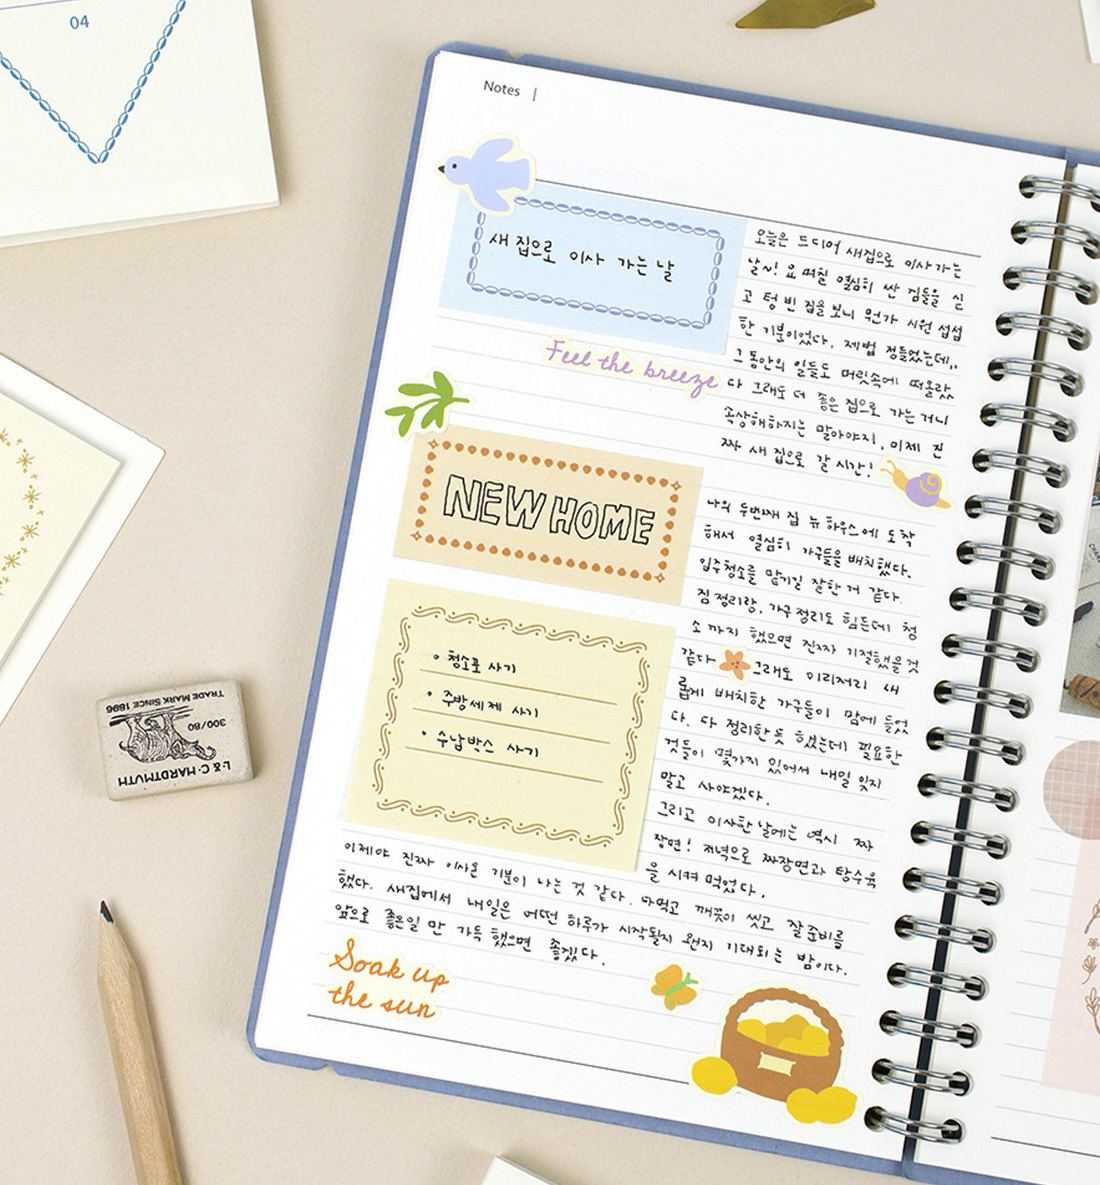 04
Notes |
새 집으로 이사 가는 날
오늘은 드디어 새집으로 이사가는
날~! 요 며칠 열심히 싼 짐들을 싣
고 텅 빈 집을 보니 뭔가 시원 섭섭
한 기분이었다. 제법 정들었는데,,
그동안의 일들도 머릿속에 떠올랐
다 그래도 더 좋은 집으로 가는거니
속상해하지는 말아야지. 이제 진
짜 새 집으로 갈 시간!
Feel the breeze
NEW HOME
나의 두번째 집 뉴 하우스에 도착
해서 열심히 가구들을 배치했다.
입주청소를 맡기길 잘한 거 같다.
짐정리랑, 가구정리도 힘든데 청
소 까지 했으면 진짜 기절했을것
같다 그래도 미리저리 새
롭게 배치한 가구들이 맘에 들었
다. 다 정리한듯 하였는데 필요한
것들이 몇가지 있어서 내일 잊지
말고 사야겠다.
그리고 이사한날에는 역시 짜
장면! 저녁으로 짜장면과 탕수육
을 시켜 먹었다.
• 청소포 사기
• 주방세제 사기
• 수납박스 사기
이제야 진짜 이사온 기분이 나는 것 같다. 다먹고 깨끗이 씻고 잘준비를
했다. 새집에서 내일은 어떤 하루가 시작될지 왠지 기대되는 밤이다.
앞으로 좋은일 만 가득 했으면 좋겠다.
Soak up
the sun
L&C·HARDTMUTH
300/80
TRADE MARK SINCE 1896